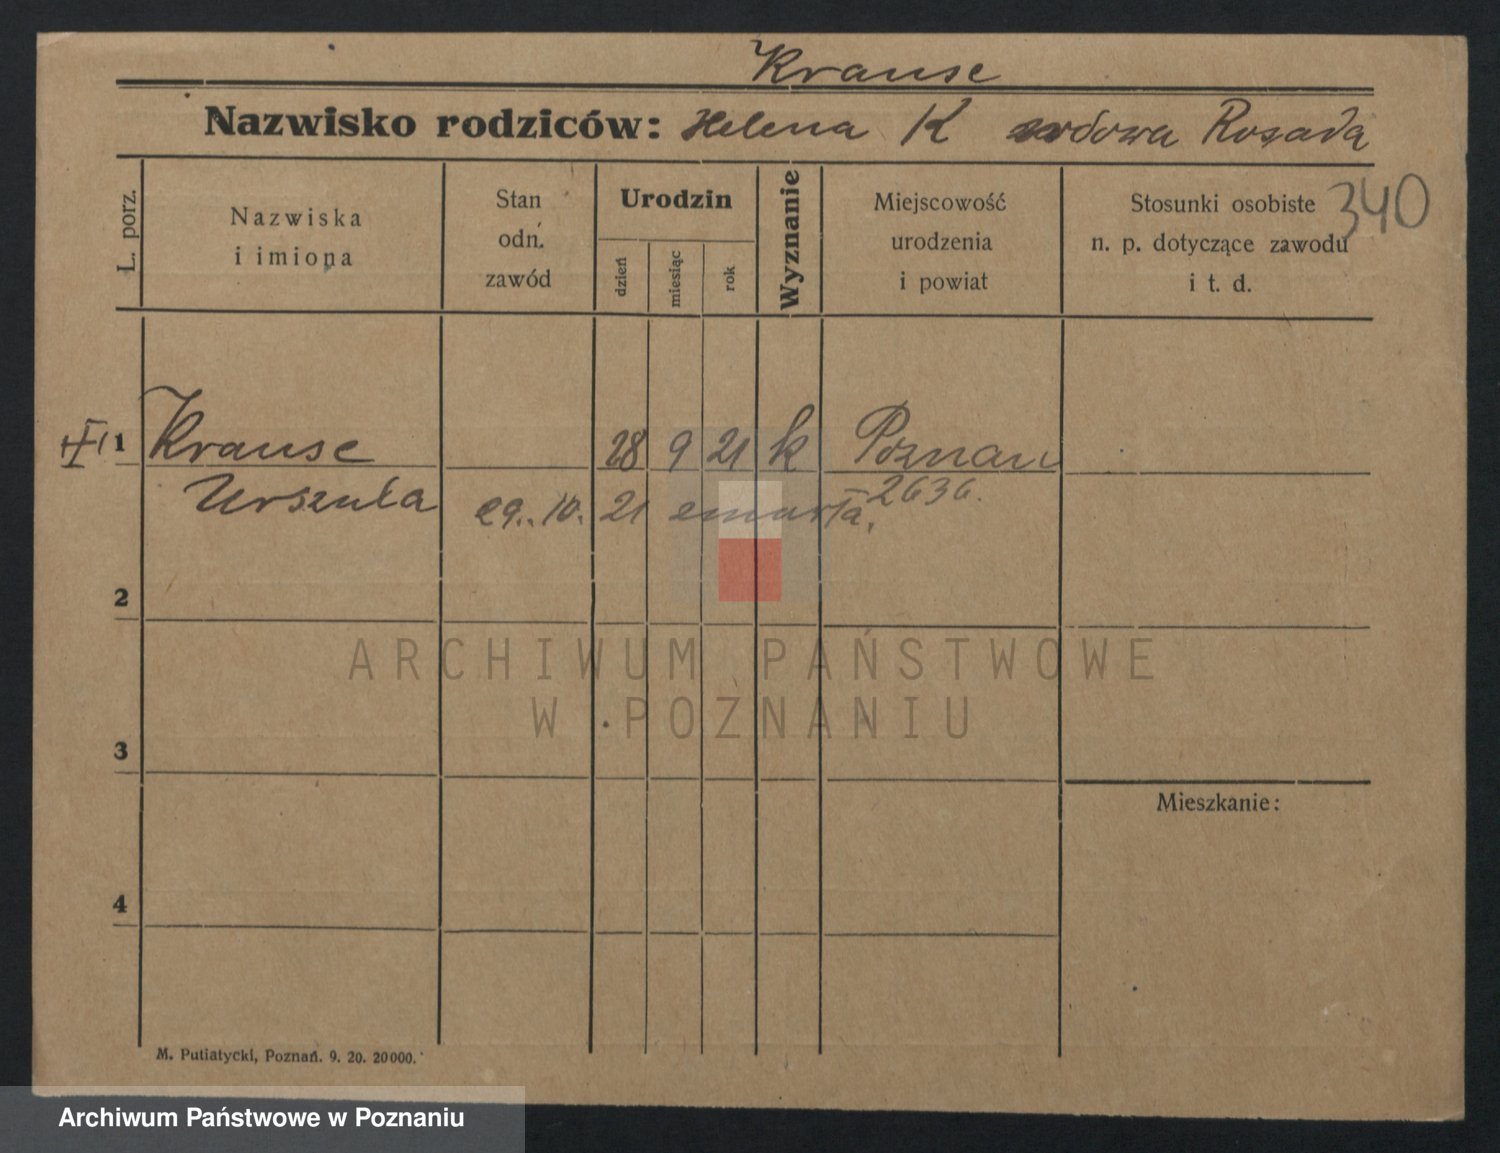 Krause
Nazwisko rodziców: Helena K wdowa Rosada
340
L. porz.
Nazwiska
i imiona
Stan
odn.
zawód
Urodzin
dzień
miesiąc
rok
Wyznanie
Miejscowość
urodzenia
i powiat
Stosunki osobiste
n. p. dotyczące zawodu
i t. d.
1 Krause 28 9 21 k Poznań
Urszula 29. 10. 21 zmarła, 2636.
2
ARCHIWUM PAŃSTWOWE
W POZNANIU
3
Mieszkanie:
4
M. Putiatycki, Poznań. 9. 20. 20000.
Archiwum Państwowe w Poznaniu